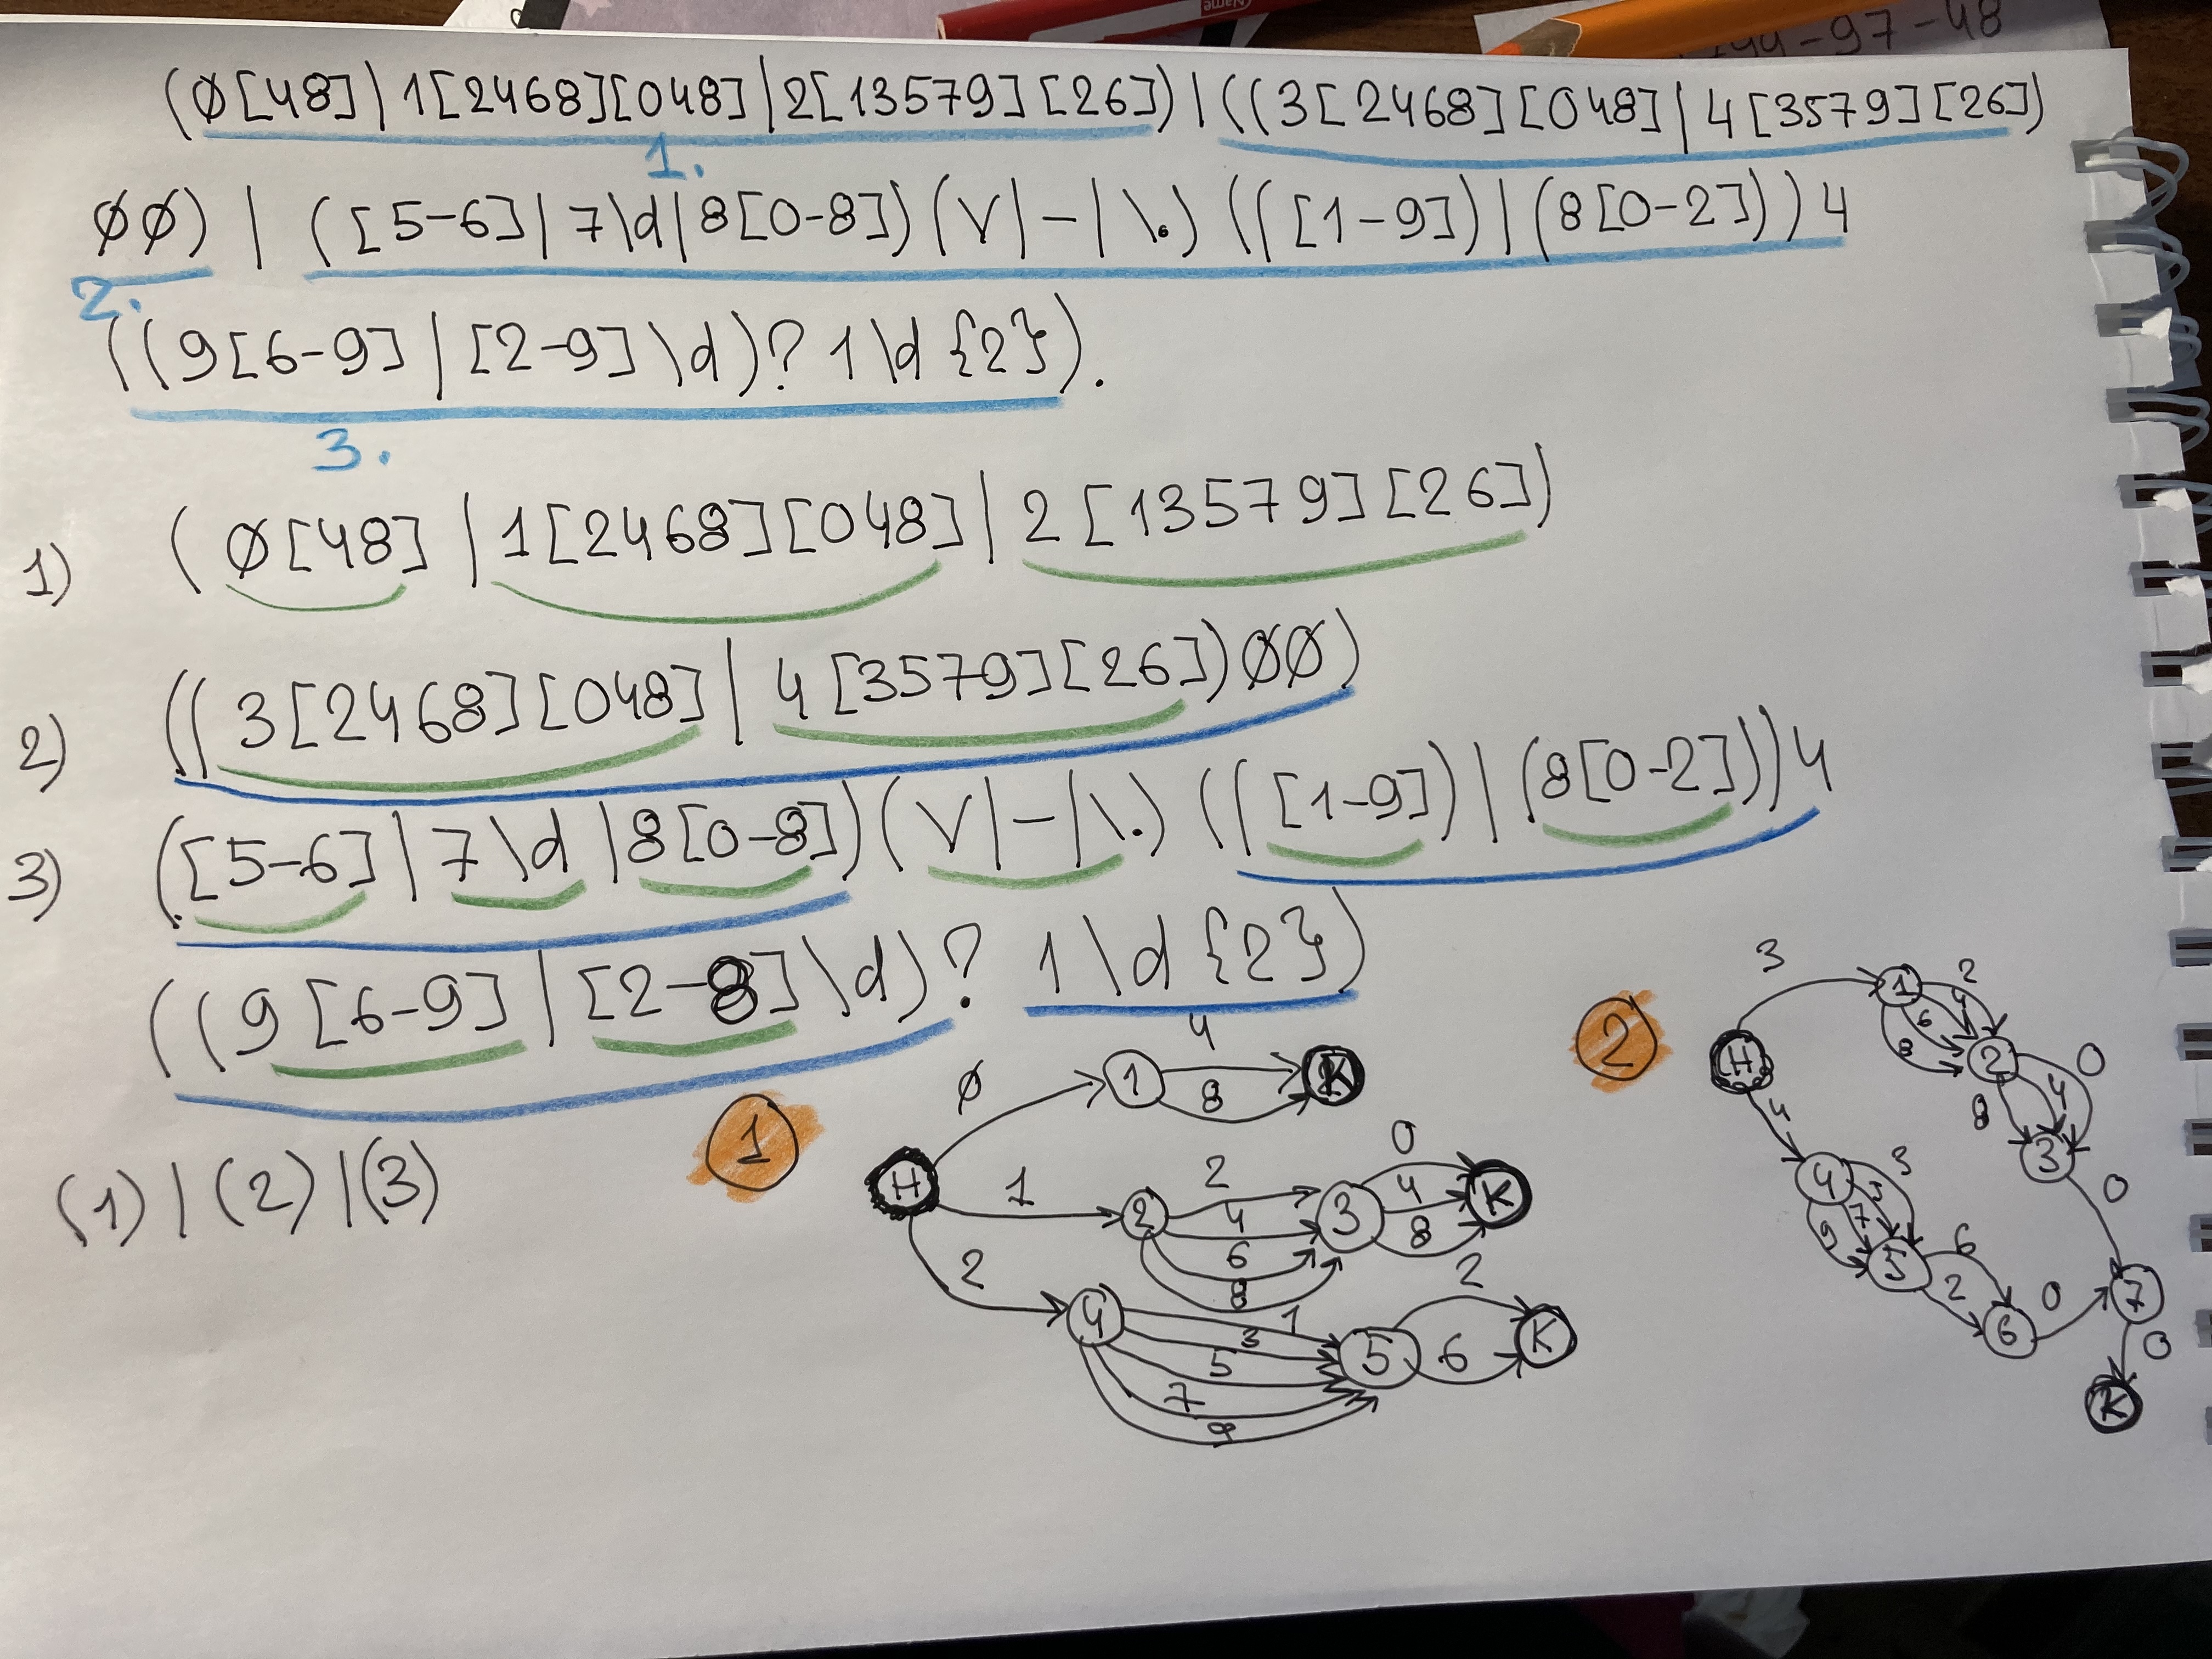 Name
-97-48
(∅[48]|1[2468][048]|2[13579][26])|((3[2468][048]|4[3579][26])
1.
∅∅) | ([5-6]|7\d|8[0-8])(\/|-|\.)(([1-9])|(8[0-2]))4
2.
((9[6-9]|[2-9]\d)?1\d{2}).
3.
1) (∅[48]|1[2468][048]|2[13579][26])
2) ((3[2468][048]|4[3579][26])∅∅)
3) ([5-6]|7\d|8[0-8])(\/|-|\.)(([1-9])|(8[0-2]))4
((9[6-9]|[2-8]\d)? 1\d{2})
(1)|(2)|(3)
1
H ∅ 1 4 8 K
1 2 2 4 6 8 3 0 4 8 K
2 4 1 3 5 7 9 5 2 6 K
2
H 3 1 2 4 6 8 2 0 4 8 3 0
4 4 3 5 7 9 5 6 2 6 0 7 0 K